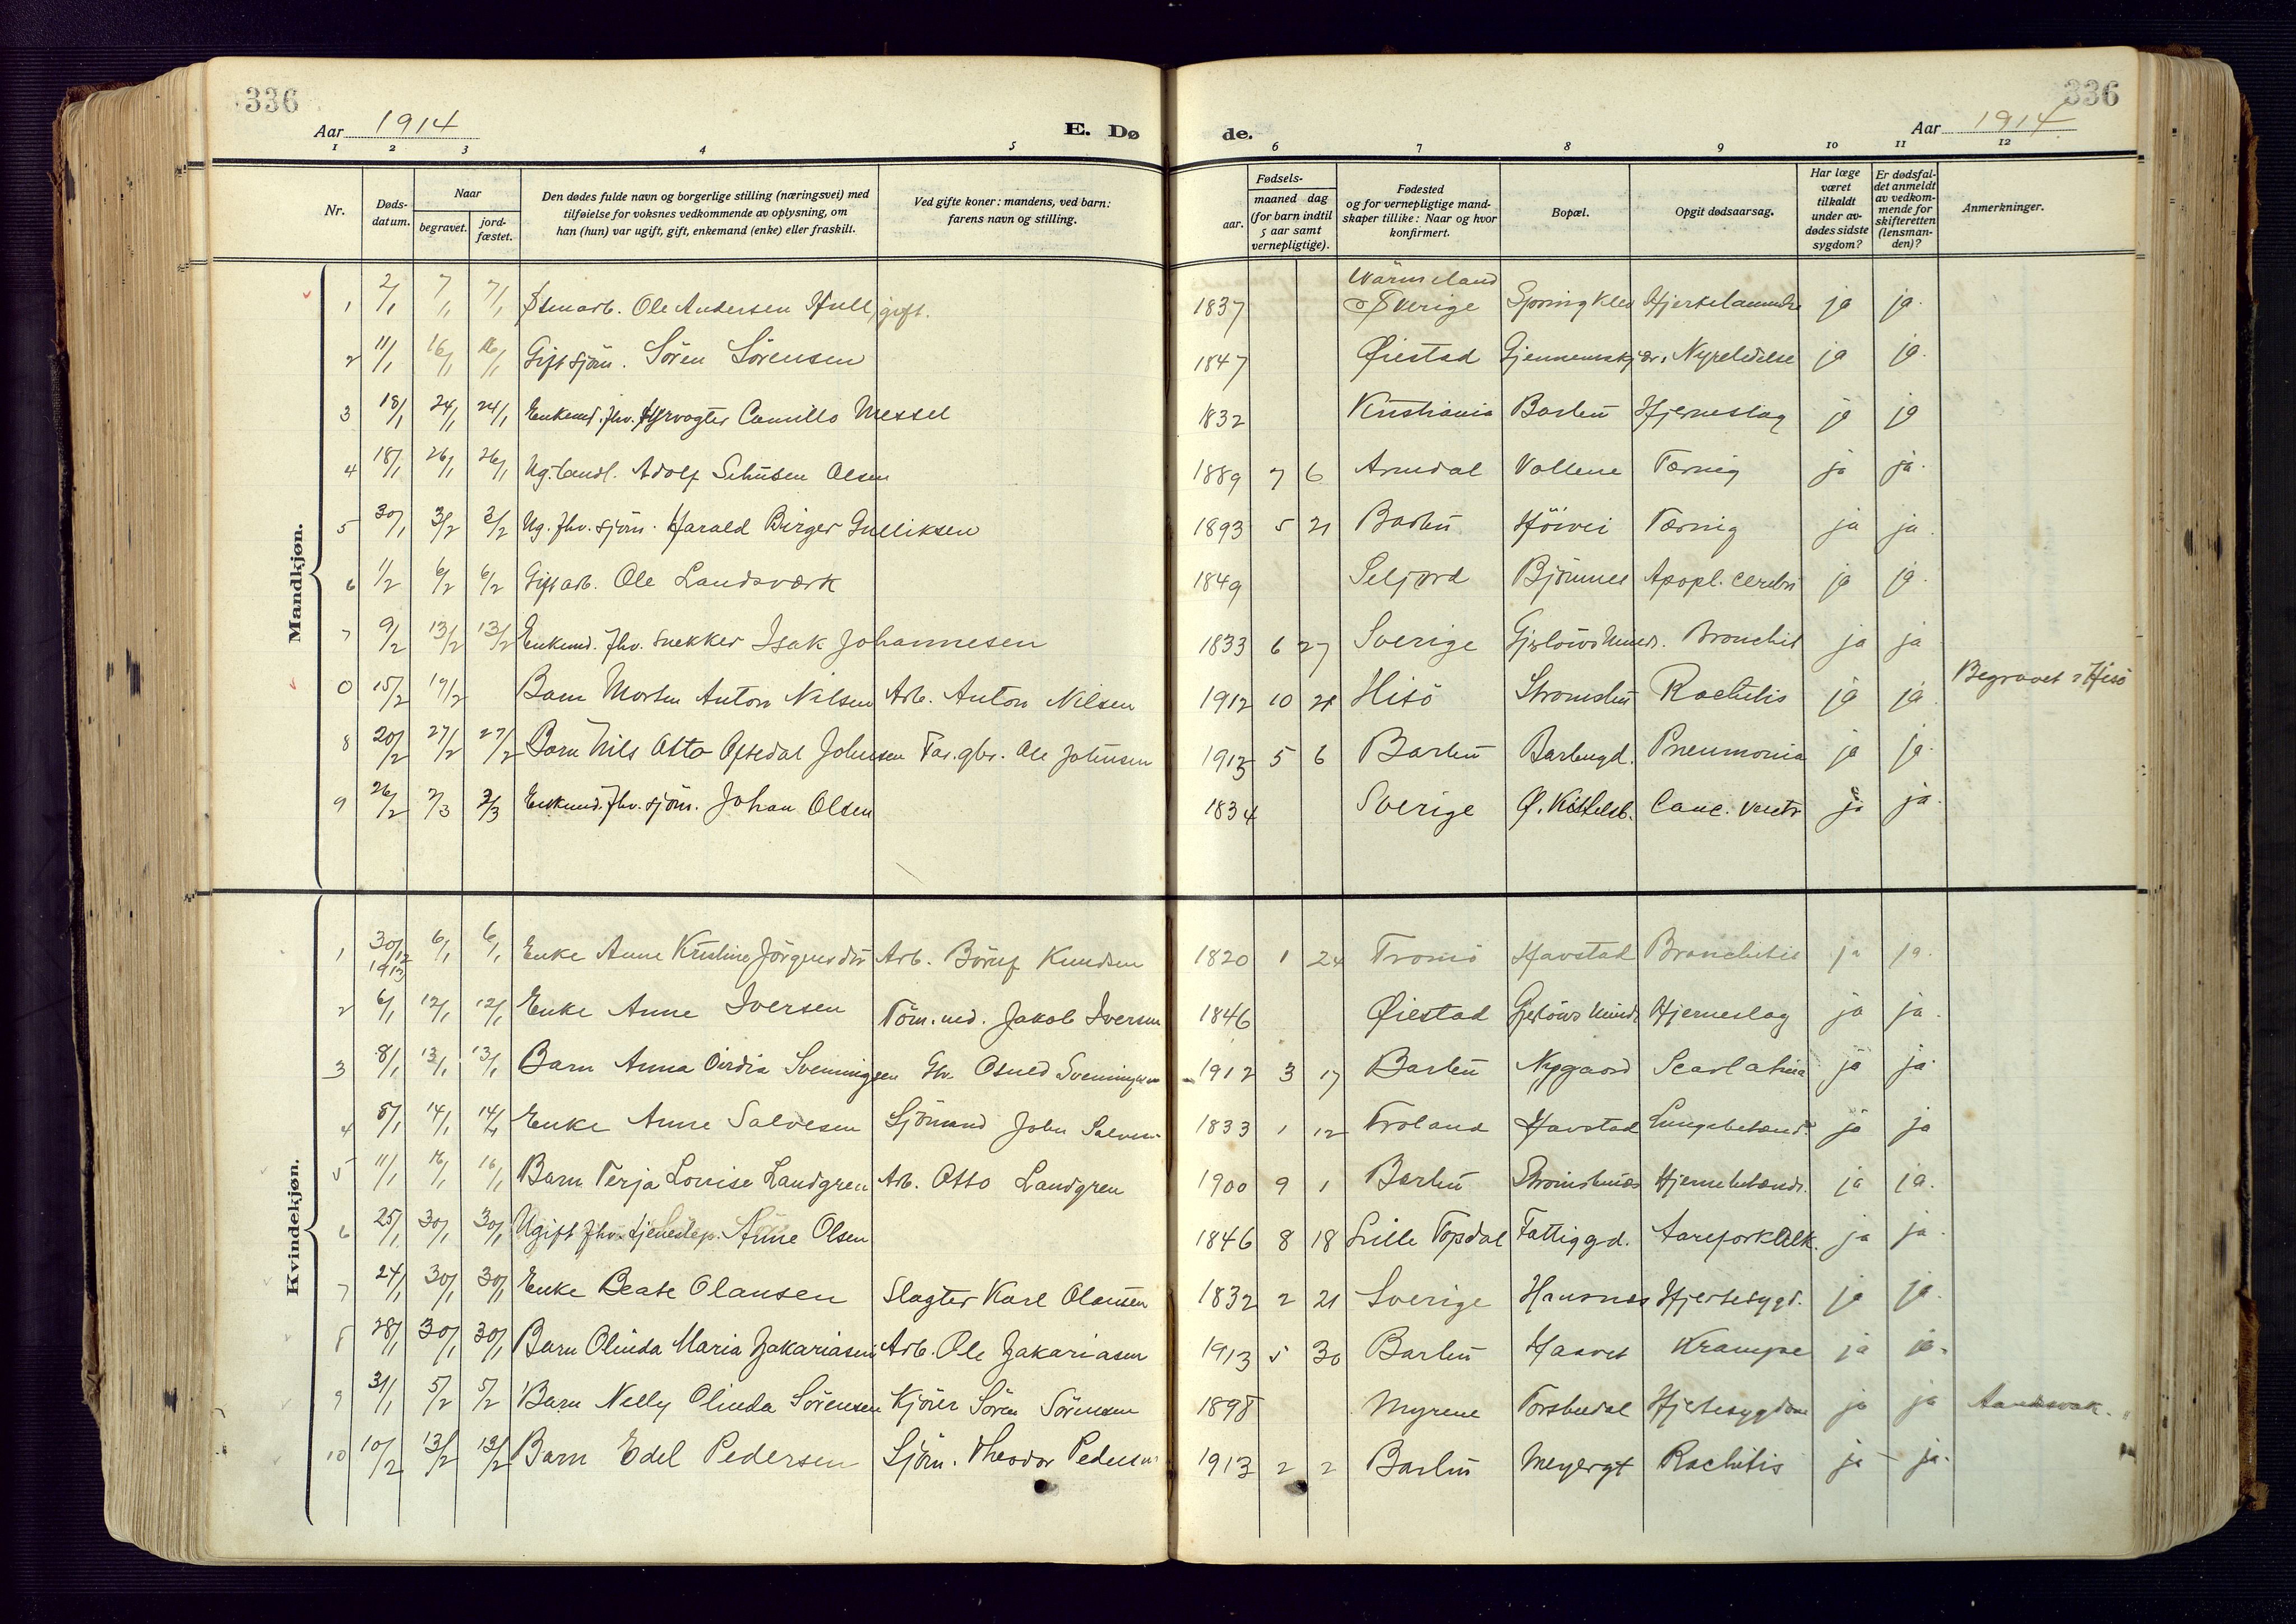 336
336
Aar 1914
E. Dø
de.
Aar 1914
1 2 3 4 5 6 7 8 9 10 11 12
Nr.
Døds-datum.
Naar
begravet.
jord-fæstet.
Den dødes fulde navn og borgerlige stilling (næringsvei) med
tilføielse for voksnes vedkommende av oplysning, om
han (hun) var ugift, gift, enkemand (enke) eller fraskilt.
Ved gifte koner: mandens, ved barn:
farens navn og stilling.
Fødsels-
aar.
maaned dag
(for barn indtil
5 aar samt
vernepligtige).
Fødested
og for vernepligtige mand-
skaper tillike: Naar og hvor
konfirmert.
Bopæl.
Opgit dødsaarsag.
Har læge
været
tilkaldt
under av-
dødes sidste
sygdom?
Er dødsfal-
det anmeldt
av vedkom-
mende for
skifteretten
(lensman-
den)?
Anmerkninger.
Mandkjøn.
1 2/1 7/1 7/1 Stenarb. Ole Andersen Hull, gift. 1837 Wärmeland Sverige Springklev ja ja.
2 11/1 16/1 16/1 Gift sjöm. Sören Sörensen 1847 Øiestad Gjennemskjær. Nyrelidelse ja ja.
3 18/1 24/1 24/1 Enkemd. fhv. fyrvogter Camillo Wessel 1832 Kristiania Barbu Hjerneslag ja ja
4 18/1 26/1 26/1 Ug. Adolf Olsen 1889 7 6 Arendal Vollene Tæring ja ja.
5 30/1 3/2 3/2 Ug. fhv. sjöm. Harald Birger Gulliksen 1893 5 21 Barbu Höivei Tæring ja ja.
6 1/2 6/2 6/2 Gift arb. Ole Landsværk 1849 Seljord Björnnes Apopl. cerebri ja ja.
7 9/2 13/2 13/2 Enkemd. fhv. snekker Isak Johannesen 1833 6 27 Sverige Bronchit ja ja
0 15/2 19/2 Barn Morten Anton Nilsen Arb. Anton Nilsen 1912 10 Hisö Strömsbu Rachitis ja ja Begravet i Hisö
8 20/2 27/2 27/2 Barn Nils Otto Ofsedal Johnsen Fas.gbr. Ole Johnsen 1913 5 6 Barbu Barbugd. Pneumonia ja ja.
9 26/2 2/3 2/3 Enkemd. fhv. sjöm. Johan Olsen 1834 Sverige Ø. Kittelsb. Canc. ventr ja ja.
Kvindekjøn.
1 30/12 1913 6/1 6/1 Enke Anne Kristine Jörgensdtr Arb. Knudsen 1820 1 24 Tromö Havstad Bronchitis ja ja.
2 6/1 12/1 12/1 Enke Anne Iversen Töm.md. Jakob Iversen 1846 Øiestad Hjerneslag ja ja.
3 8/1 13/1 13/1 Barn Anna Svenningsen Svenningsen 1912 3 17 Barbu Nygaard Scarlatina ja ja
4 8/1 14/1 14/1 Enke Anne Salvesen Sjömand John Salvesen 1833 1 12 Froland Havstad Lungebetænd. ja ja
5 11/1 16/1 16/1 Barn Terja Lovise Landgren Arb. Otto Landgren 1900 9 1 Barbu Strömsbunes Hjernebetænd. ja ja.
6 25/1 30/1 30/1 Ugift fhv. tjenestep. Anne Olsen 1846 8 18 Lille Topdal Fattiggd. Aareforkalk. ja ja.
7 24/1 30/1 30/1 Enke Beate Olausen Slagter Karl Olausen 1832 2 21 Sverige Hausnes Hjertesygd. ja ja.
8 28/1 30/1 30/1 Barn Olinda Maria Zakariasen Arb. Ole Zakariasen 1913 5 30 Barbu Haavet Krampe ja ja.
9 31/1 5/2 5/2 Barn Nelly Olinda Sörensen Kjörer Sören Sörensen 1898 Myrene Torsbudal Hjertesygdom ja ja Aandssvak.
10 10/2 13/2 13/2 Barn Edel Pedersen Sjöm. Theodor Pedersen 1913 2 2 Barbu Meyergt Rachitis ja ja.